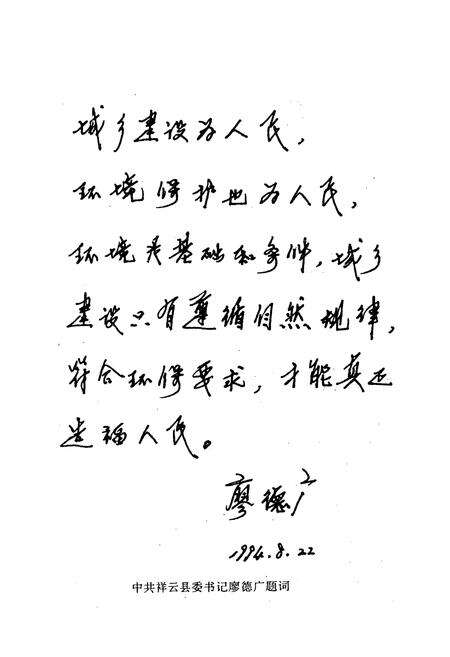 城乡建设为人民，
环境保护也为人民，
环境是基础和条件，城乡
建设只有遵循自然规律，
符合环保要求，才能真正
造福人民。
廖德广
1994.8.22
中共祥云县委书记廖德广题词